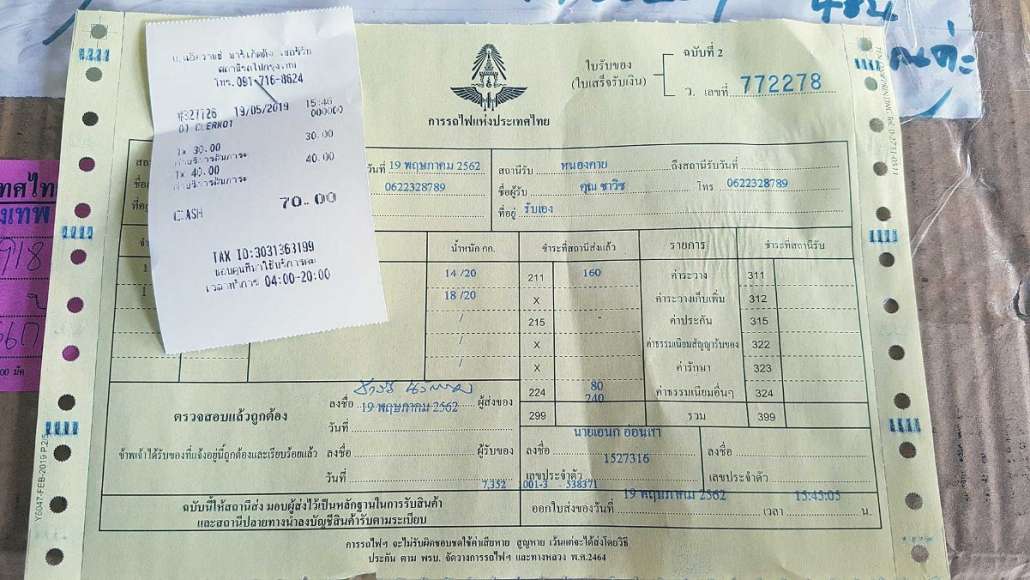 สถานีรถไฟกรุงเทพ
โทร. 091-716-8624
19/05/2019 15:46
000000
01 CLERK01
1x 30.00
30.00
ค่าบริการสัมภาระ
1x 40.00
40.00
ค่าบริการสัมภาระ
CASH 70.00
TAX ID:3031363199
ขอบคุณที่มาใช้บริการค่ะ
เวลาทำการ 04:00-20:00
การรถไฟแห่งประเทศไทย
ใบรับของ
(ใบเสร็จรับเงิน)
ฉบับที่ 2
ว. เลขที่ 772278
วันที่ 19 พฤษภาคม 2562
0622328789
สถานีรับ หนองคาย ถึงสถานีรับวันที่
ชื่อผู้รับ คุณ ชาวิช โทร 0622328789
ที่อยู่ รับเอง
น้ำหนัก กก. ชำระที่สถานีส่งแล้ว รายการ ชำระที่สถานีรับ
1 14 /20 211 160 ค่าระวาง 311
1 18 /20 X ค่าระวางเก็บเพิ่ม 312
/ 215 - ค่าประกัน 315
/ X ค่าธรรมเนียมสัญญารับของ 322
/ X ค่ารักษา 323
224 80 ค่าธรรมเนียมอื่นๆ 324
299 240 รวม 399
ตรวจสอบแล้วถูกต้อง
ลงชื่อ ผู้ส่งของ
วันที่ 19 พฤษภาคม 2562
ข้าพเจ้าได้รับของที่แจ้งอยู่นี้ถูกต้องและเรียบร้อยแล้ว
ลงชื่อ ผู้รับของ
วันที่
นายเอนก อ่อนเสา
ลงชื่อ
1527316
เลขประจำตัว
ลงชื่อ
เลขประจำตัว
7,352 001-3 538371
ฉบับนี้ให้สถานีส่ง มอบผู้ส่งไว้เป็นหลักฐานในการรับสินค้า
และสถานีปลายทางนำลงบัญชีสินค้ารับตามระเบียบ
ออกใบส่งของวันที่ 19 พฤษภาคม 2562 เวลา 15:45:05 น.
การรถไฟฯ จะไม่รับผิดชอบชดใช้ค่าเสียหาย สูญหาย เว้นแต่จะได้ส่งโดยวิธี
ประกัน ตาม พรบ. จัดวางการรถไฟฯ และทางหลวง พ.ศ.2464
Y6047-FEB-2019 P.2/5